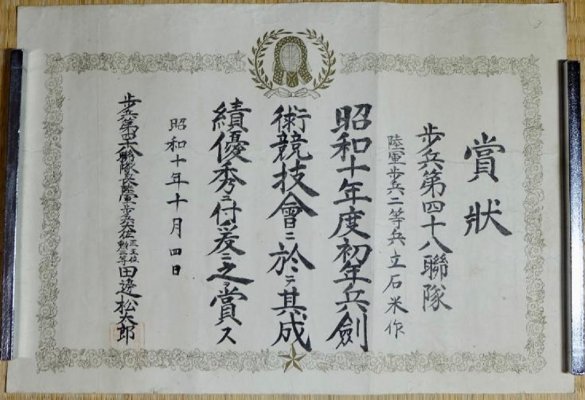 賞狀
步兵第四十八聯隊
陸軍步兵二等兵立石米作
昭和十年度初年兵劍
術競技會ニ於テ其成
績優秀ニ付爰ニ之賞ス
昭和十年十月四日
步兵第四十八聯隊長陸軍步兵大佐正五位勲三等田邊松太郎